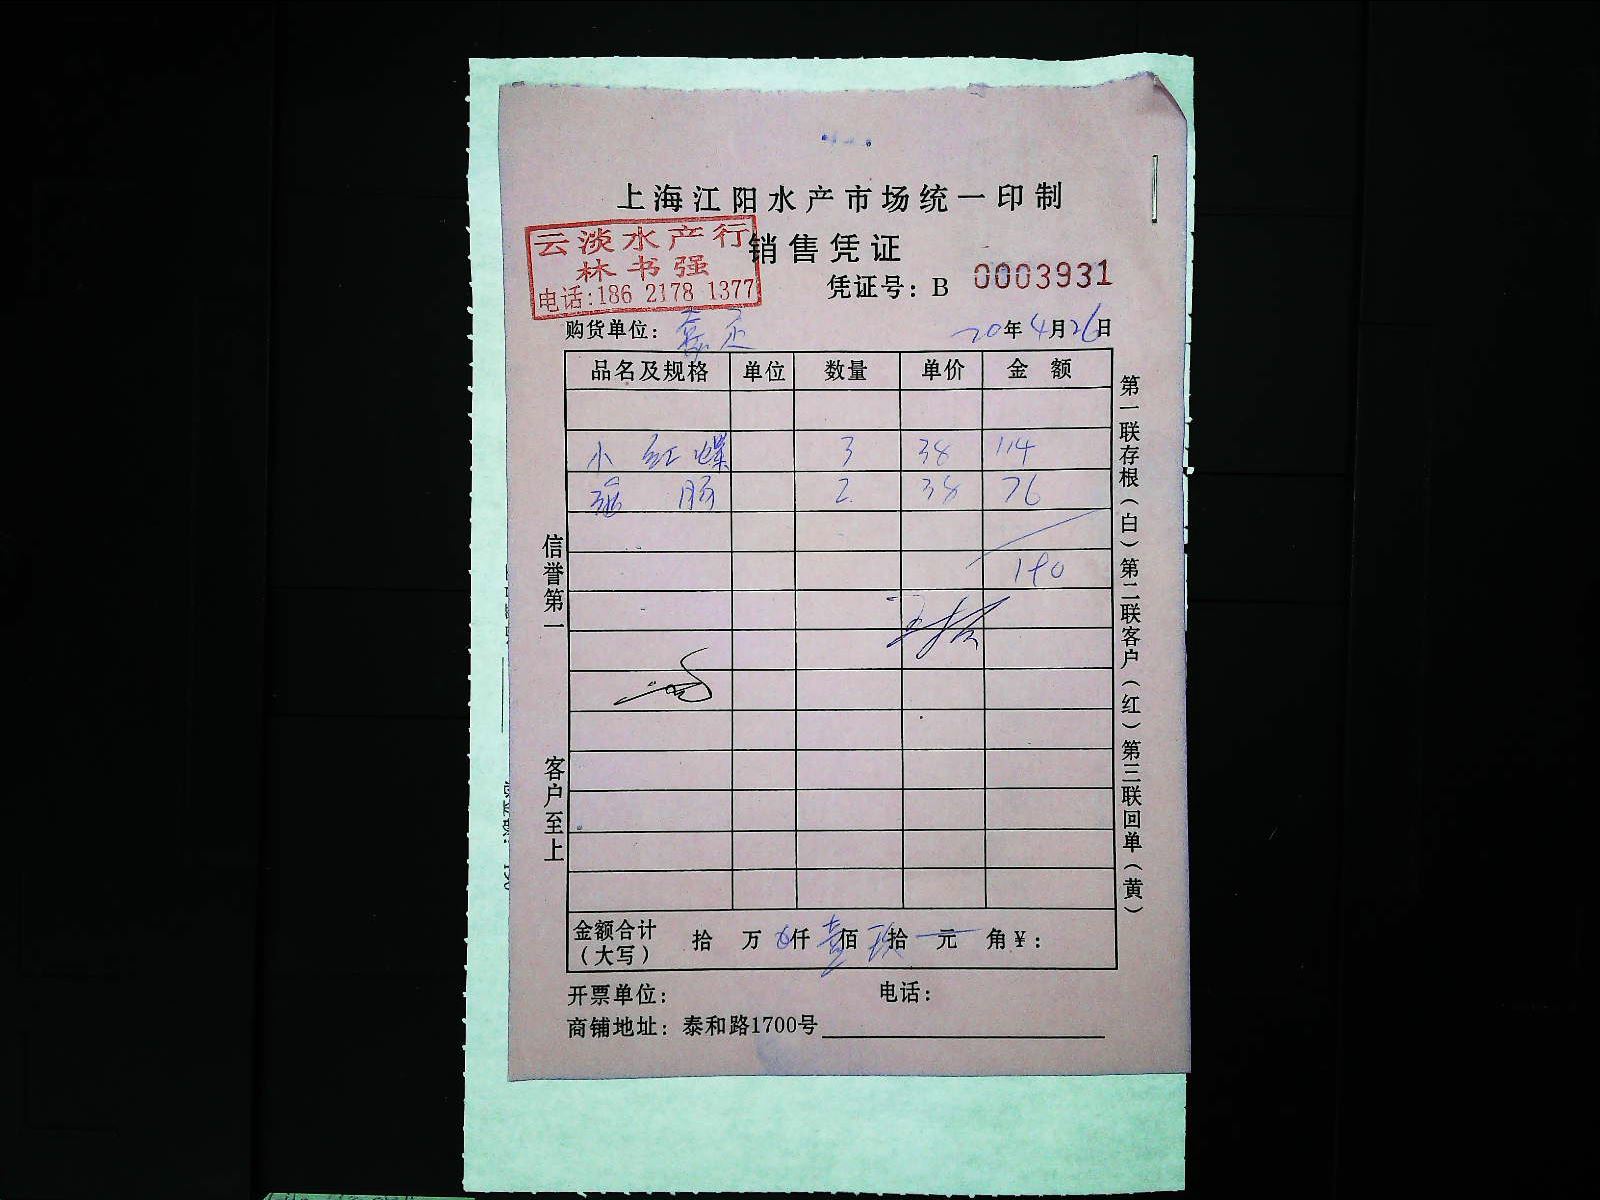 上海江阳水产市场统一印制
销售凭证
云淡水产行
林书强
电话:186 2178 1377
凭证号: B 0003931
购货单位: 嘉定 20年4月26日
品名及规格 单位 数量 单价 金额
小红螺 3 38 114
2 38 76
190
信誉第一
客户至上
第一联存根(白)第二联客户(红)第三联回单(黄)
金额合计(大写) 拾 万 仟 壹佰 玖拾 元 角 ¥:
开票单位: 电话:
商铺地址: 泰和路1700号